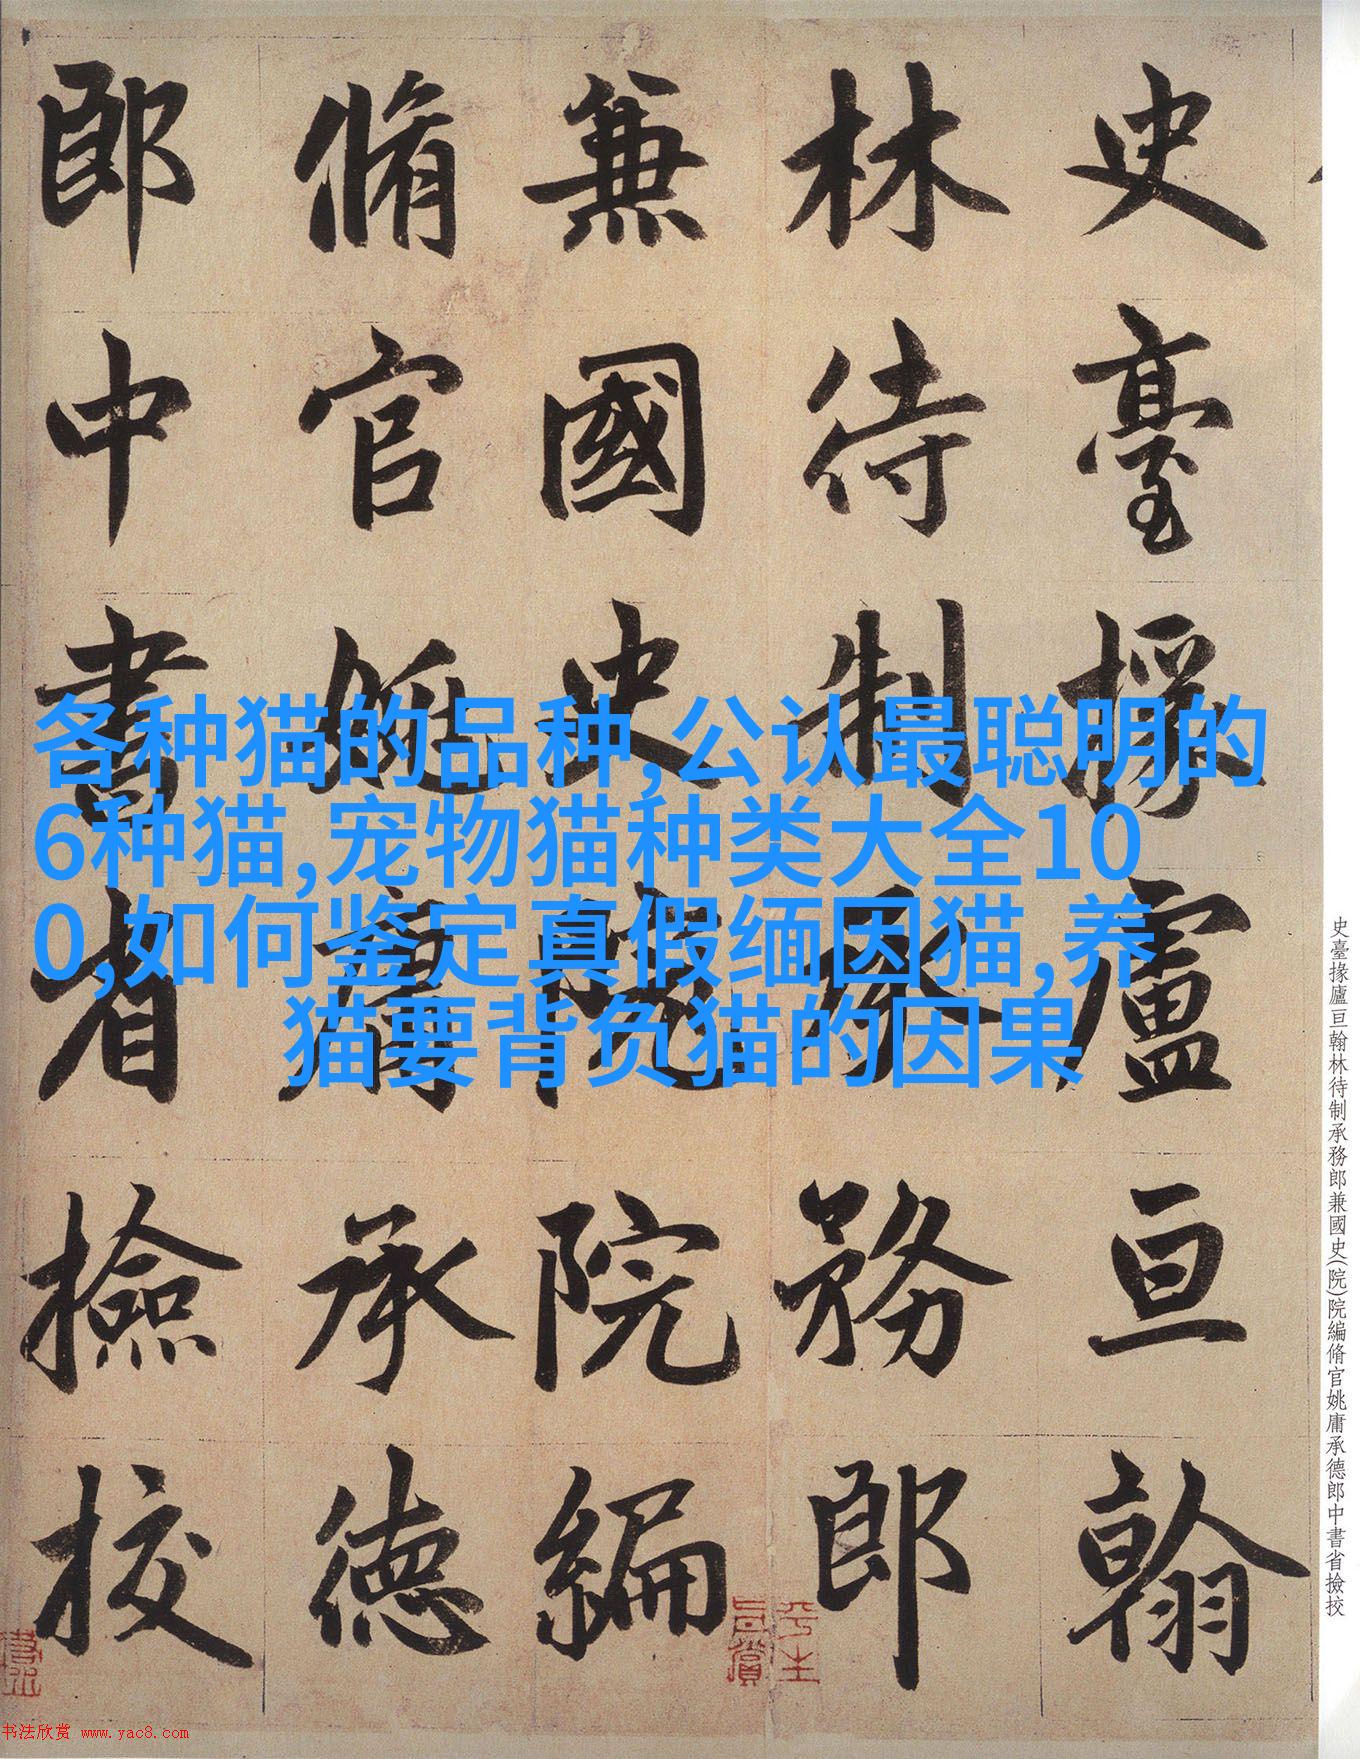 史臺掾盧亘翰
林待制承務郎
兼國史院院編
脩官姚庸承德
郎中書省撿挍
各种猫的品种,公认最聪明的
6种猫,宠物猫种类大全10
0,如何鉴定真假缅因猫,养
猫要背负猫的因果
史臺掾廬亘翰林待制承務郎兼國史(院)院編脩官姚庸承德郎中書省撿挍
书法欣赏 www.yac8.com